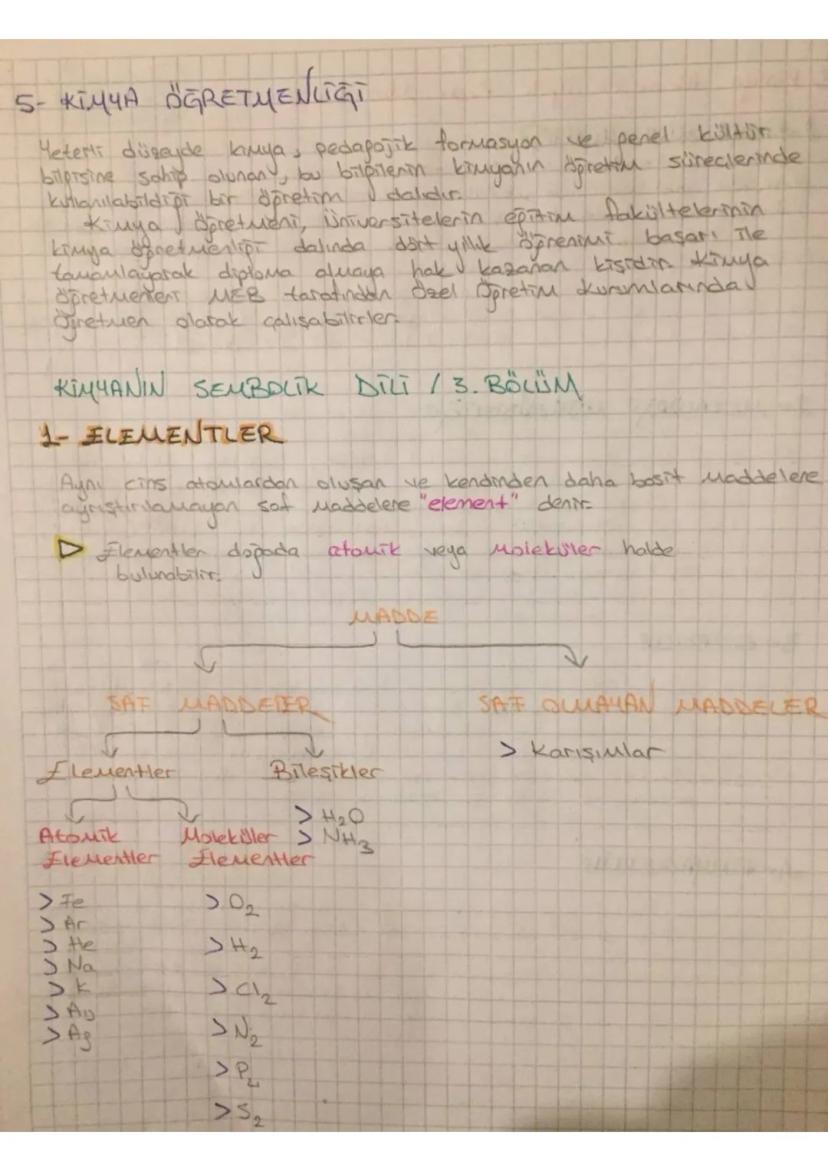 5- KİMYA ÖĞRETMENLİĞİ
Yeterli düzeyde kimya, pedagojik formasyon ve genel kültür
bilgisine sahip olunan, bu bilgilerin kimyanın öğretim süreclerinde
kullanılabildiği bir öğretim dalıdır.
Kimya öğretmeni, üniversitelerin eğitim fakültelerinin
kimya öğretmenliği dalında dört yıllık öğrenimi başarı ile
tamamlayarak diploma almaya hak kazanan kişidir. Kimya
öğretmenleri MEB tarafından özel öğretim kurumlarında
öğretmen olarak çalışabilirler.
KİMYANIN SEMBOLİK DİLİ / 3. BÖLÜM
1- ELEMENTLER
Aynı cins atomlardan oluşan ve kendinden daha basit maddelere
ayrıştırılamayan saf maddelere "element" denir.
▷ Elementler doğada atomik veya moleküler halde
bulunabilir.
MADDE
SAF MADDELER SAF OLMAYAN MADDELER
Elementler Bileşikler > Karışımlar
> H₂O
Atomik Moleküler > NH₃
Elementler Elementler
> Fe > O₂
> Ar
> He > H₂
> Na
> K > Cl₂
> Au
> Ag > N₂
> P₄
> S₂